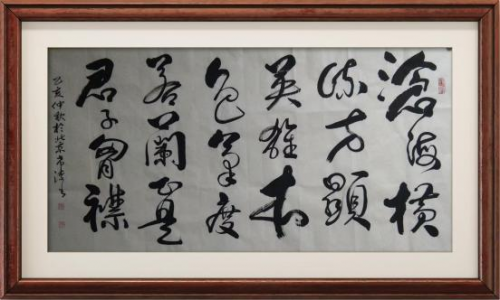 滄海橫
流方顯
英雄本
色氣度
若蘭正是
君子胸襟
己亥仲秋於北京